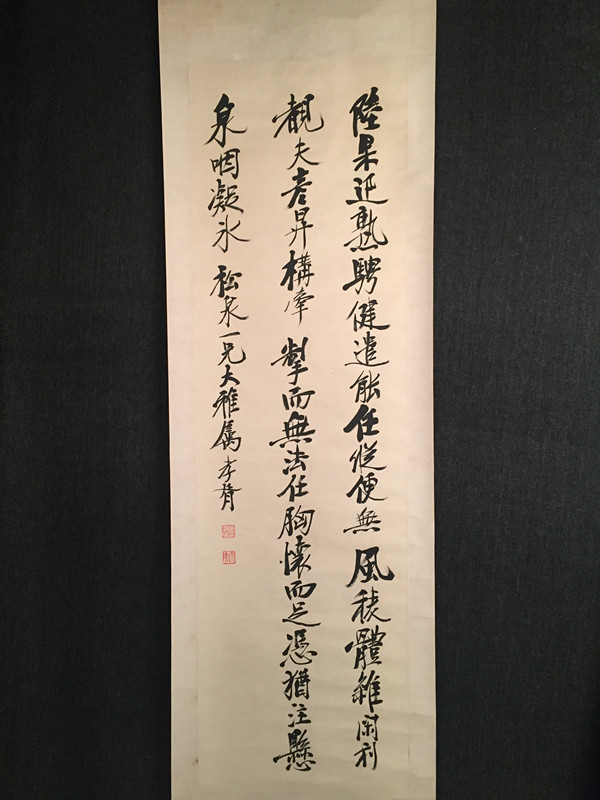 陸杲迅熟騁健遣能任縱便無風稜體雖閑利
覩夫彥昇構牽掣而無法任胸懷而足憑猶注懸
泉咽凝冰 松泉一兄大雅屬 孝胥